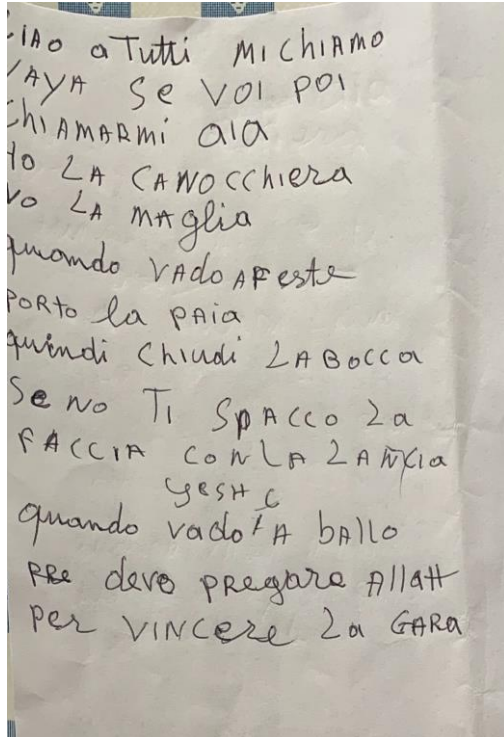 CIAO a TUTTI MI ChIAMO
YAYA Se VOI POI
ChIAMARMI aIa
HO LA CANOCChIeRa
LA MAglIa
quando VAdO A Feste
PORTO la PAIa
quindi ChIUdi LA BOCCa
Se NO TI SpACCO La
FACCIA CON LA LANCIa
quando vado A bAllO
PRe devo pRegare AllaH
peR VINCeRe La GARa